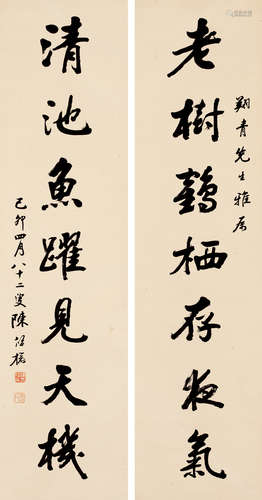 老樹鶴栖存夜氣
翔青先生雅属
清池魚躍見天機
己卯四月八十二叟陳